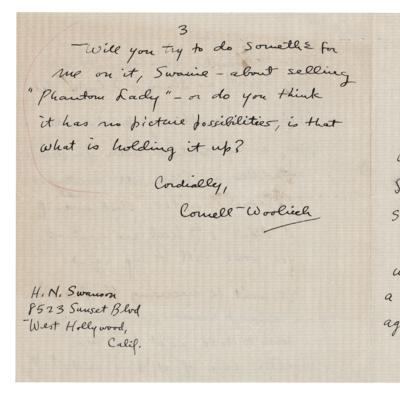 3
Will you try to do someth'g for
me on it, Swanie - about selling
"Phantom Lady" - or do you think
it has no picture possibilities, is that
what is holding it up?
Cordially,
Cornell Woolrich
H. N. Swanson
8523 Sunset Blvd
West Hollywood,
Calif.
a
ag